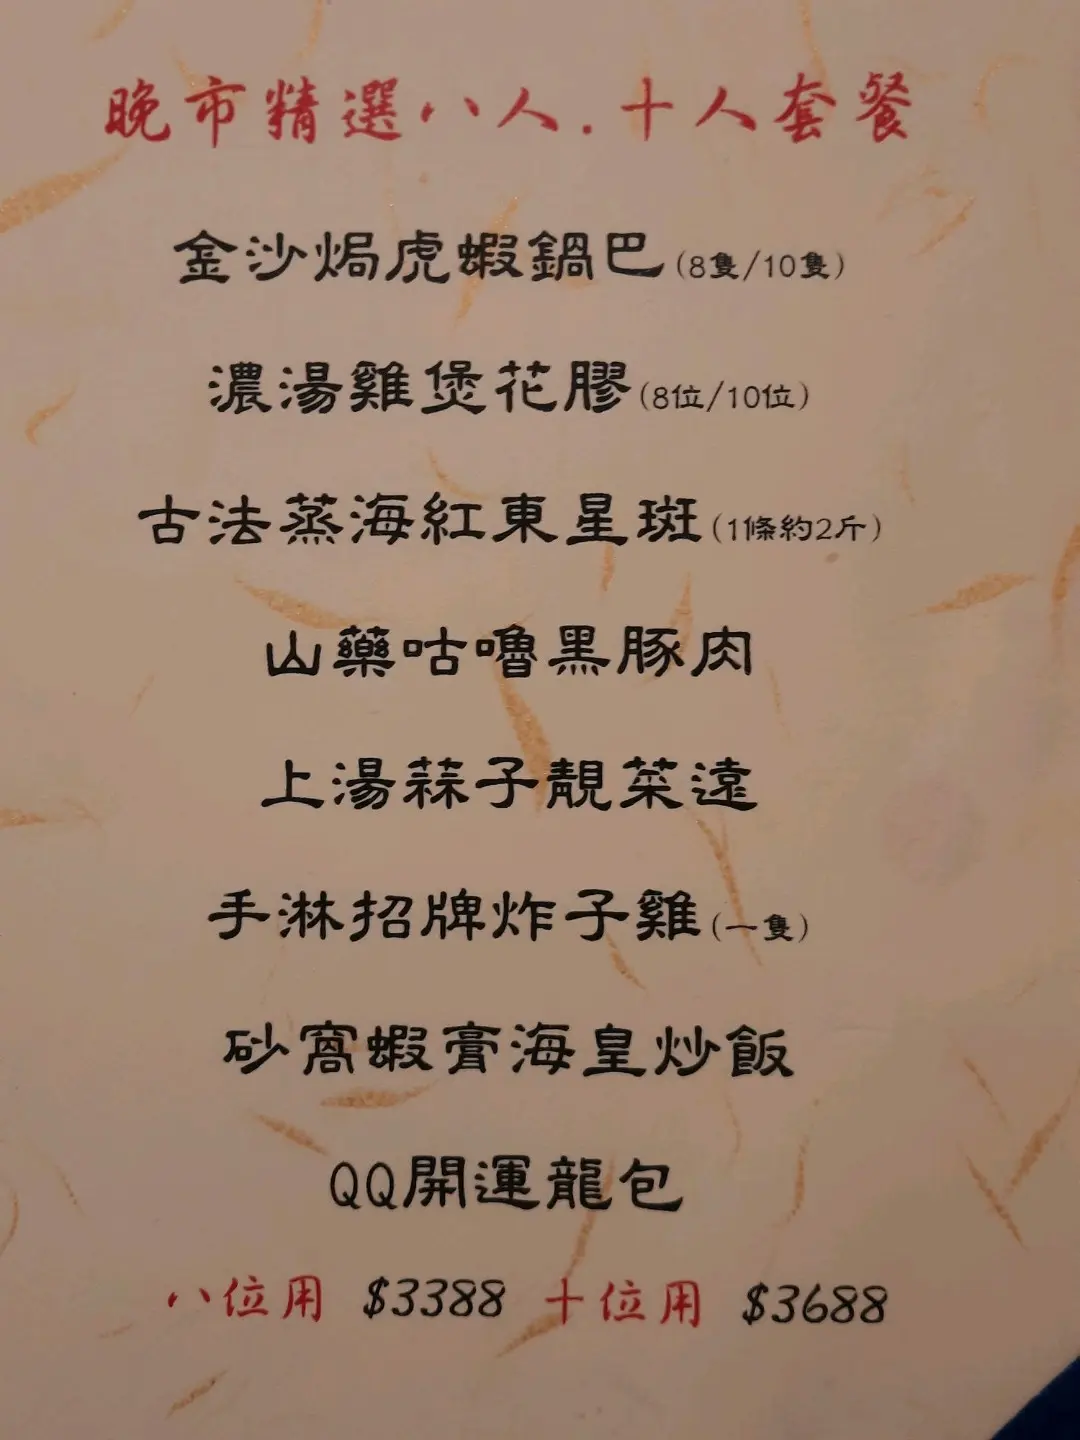 晚市精選八人.十人套餐
金沙焗虎蝦鍋巴(8隻/10隻)
濃湯雞煲花膠(8位/10位)
古法蒸海紅東星斑(1條約2斤)
山藥咕嚕黑豚肉
上湯蒜子靚菜遠
手淋招牌炸子雞(一隻)
砂窩蝦膏海皇炒飯
QQ開運龍包
八位用 $3388 十位用 $3688